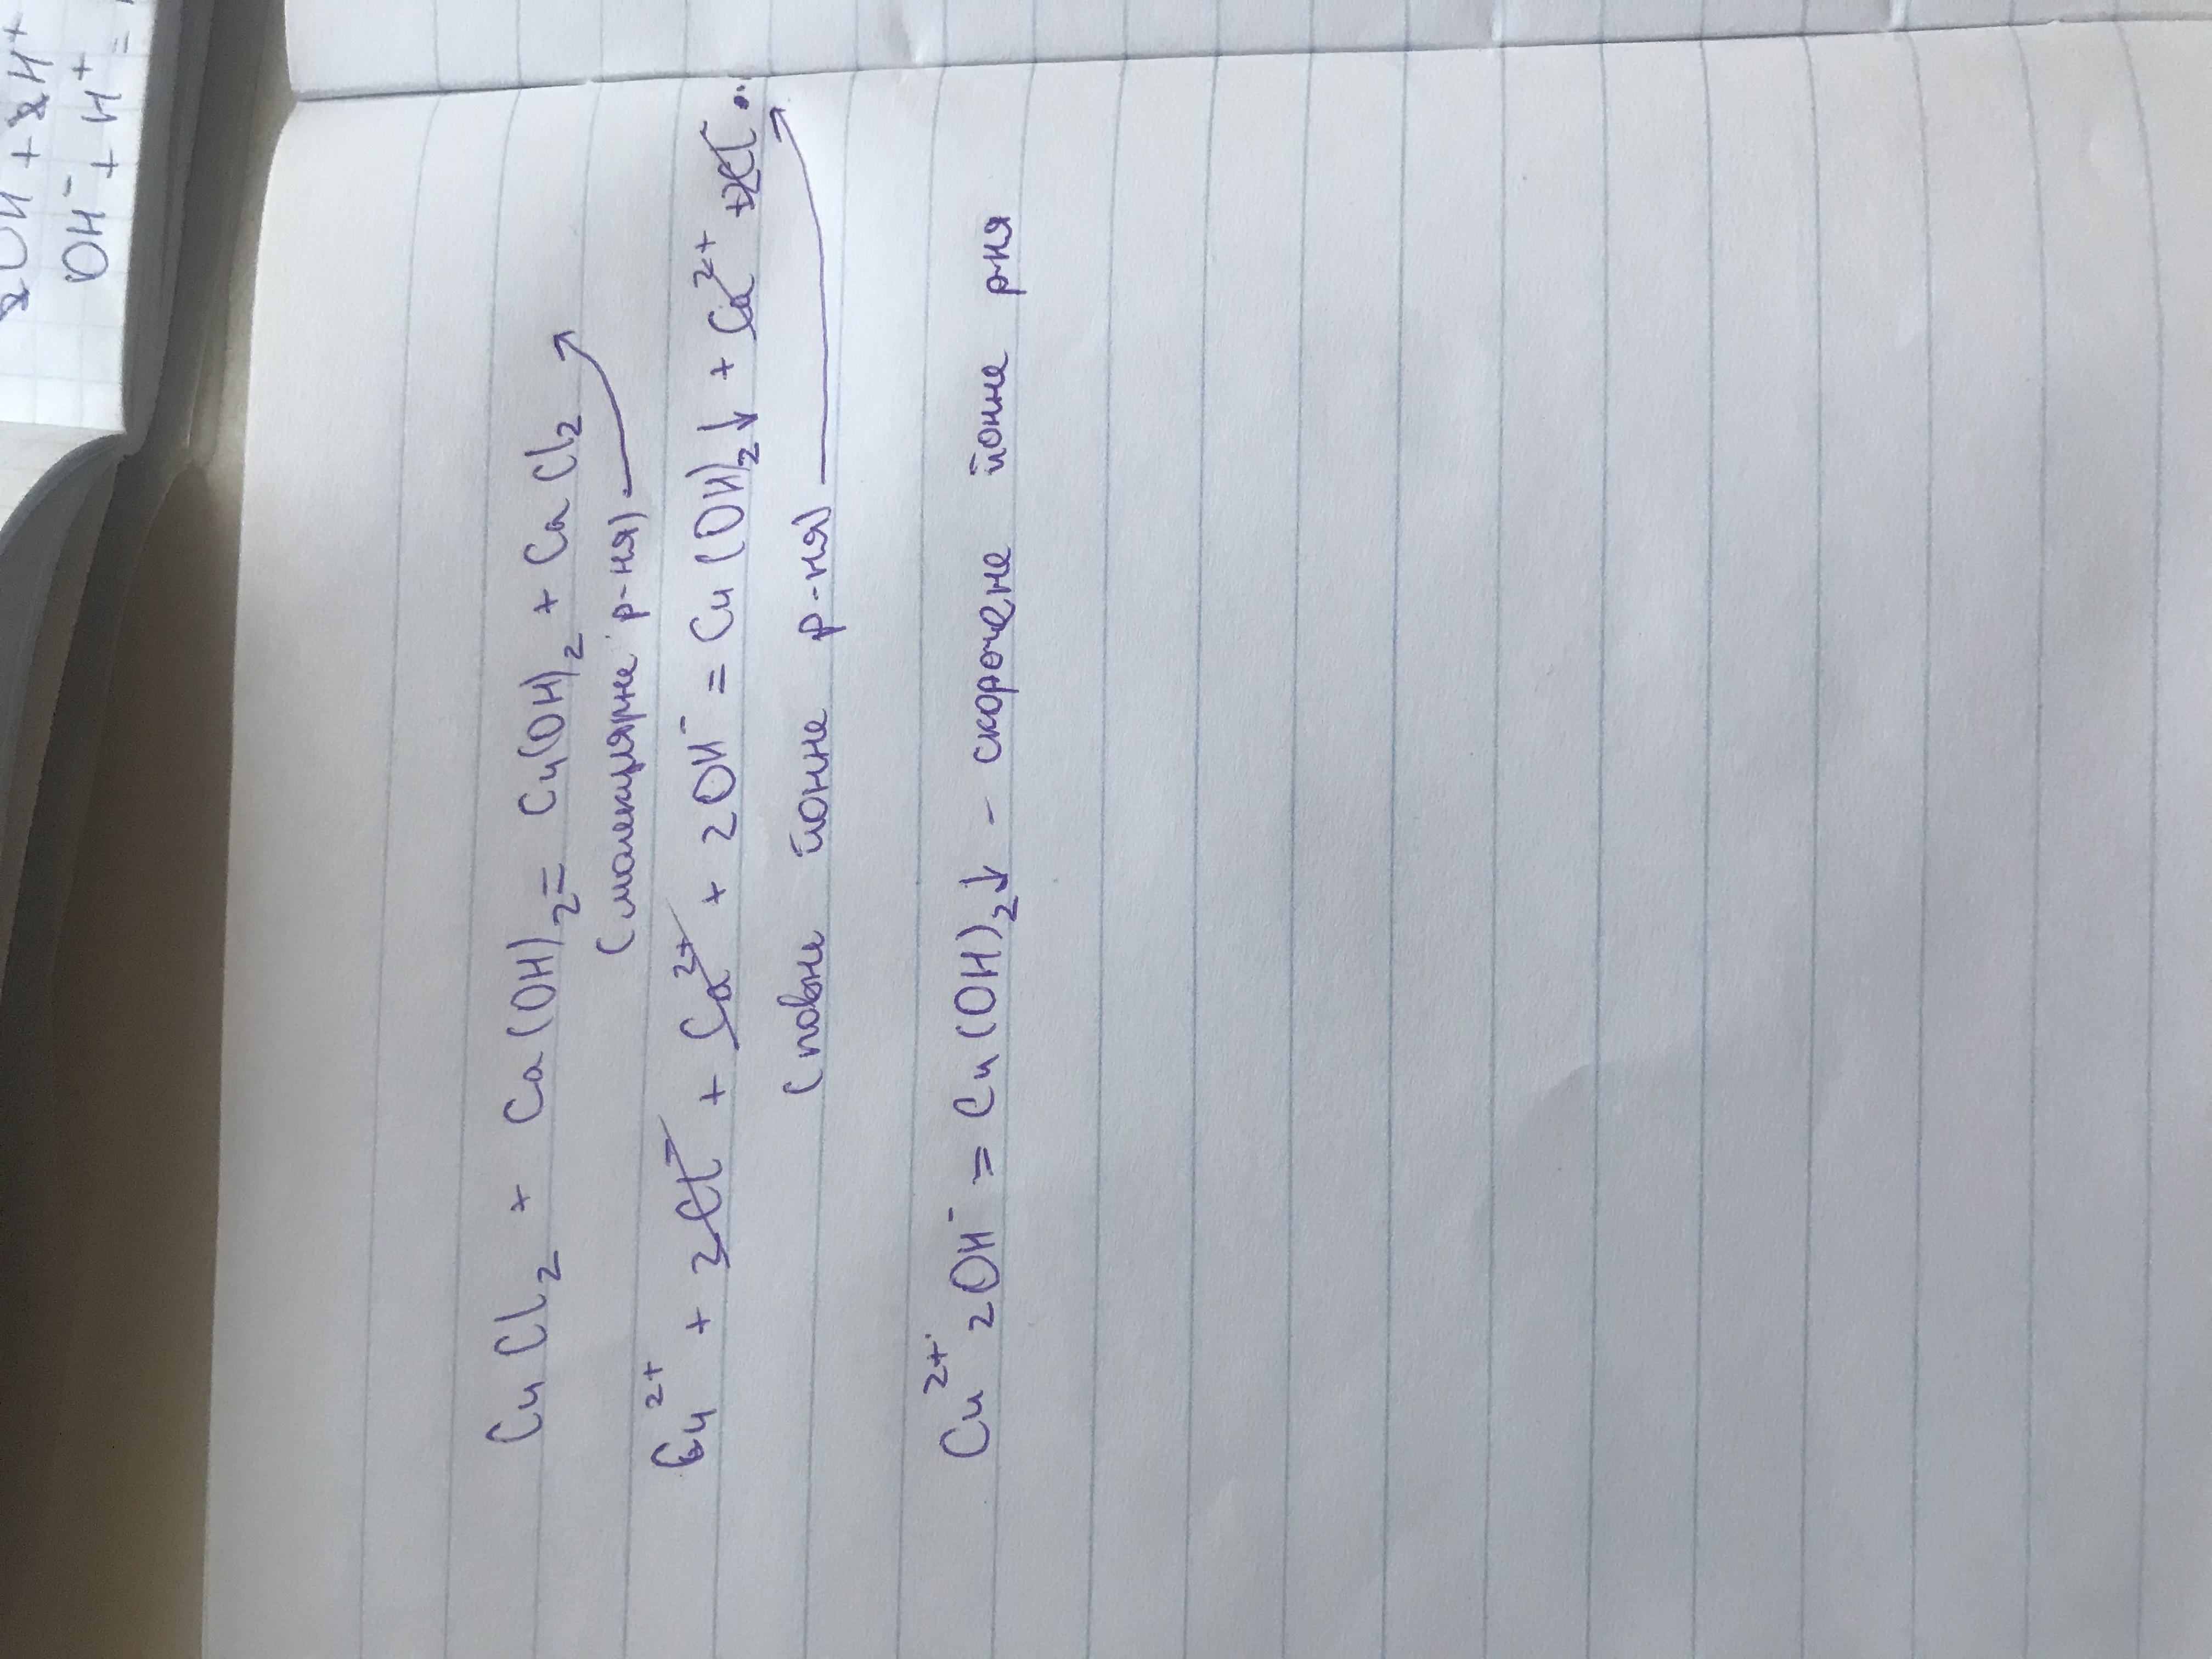 CuCl₂ + Ca(OH)₂ = Cu(OH)₂ + CaCl₂
(молекулярне р-ня)
Cu²⁺ + 2Cl⁻ + Ca²⁺ + 2OH⁻ = Cu(OH)₂↓ + Ca²⁺ + 2Cl⁻
(повне йонне р-ня)
Cu²⁺ 2OH⁻ = Cu(OH)₂↓ - скорочене йонне р-ня
2OH + 2H⁺
OH⁻ + H⁺ =